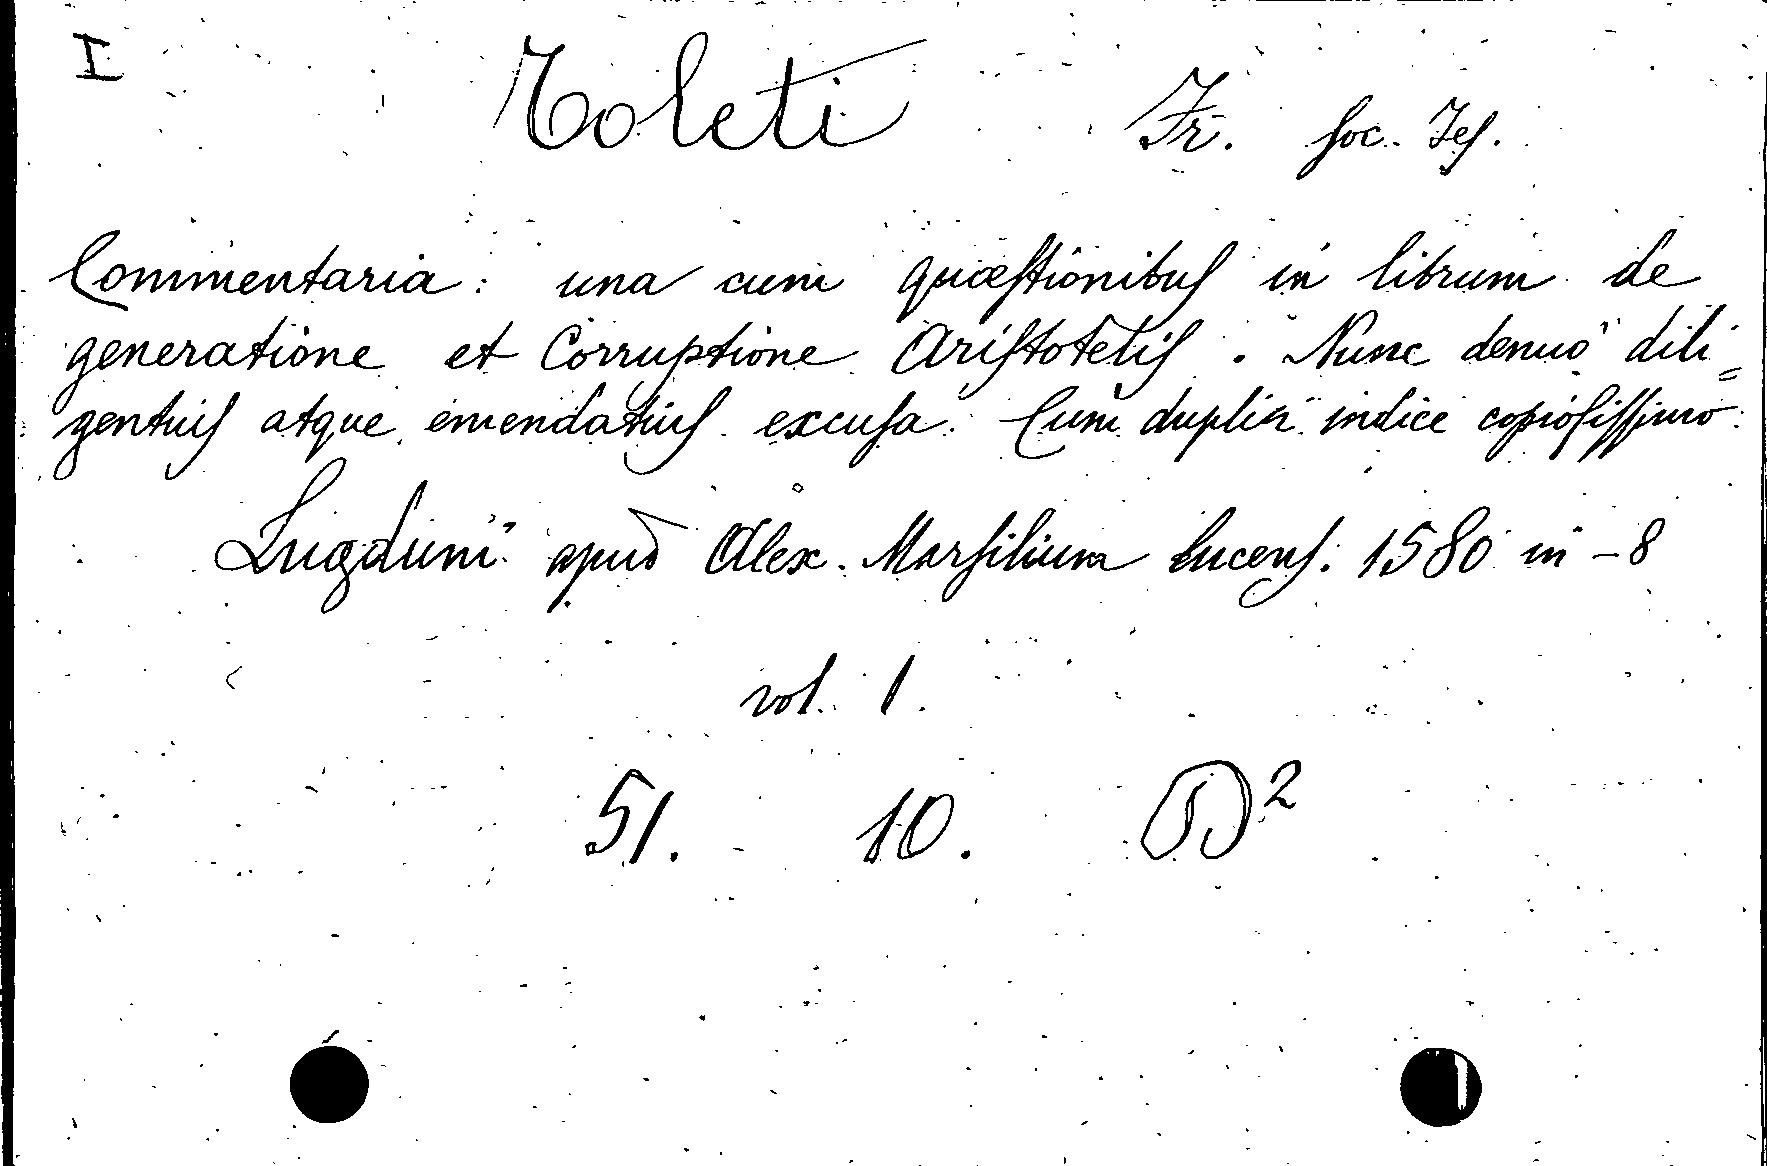 I
Toleti Fr. Soc. Jes.
Commentaria: una cum quæstionibus in librum de
generatione et Corruptione Aristotelis. Nunc denuò dili=
gentius atque emendatius excusa. Cum duplici indice copiosissimo.
Lugduni apud Alex. Marsilium Lucens. 1580 in-8
vol. 1.
51. 10. D²